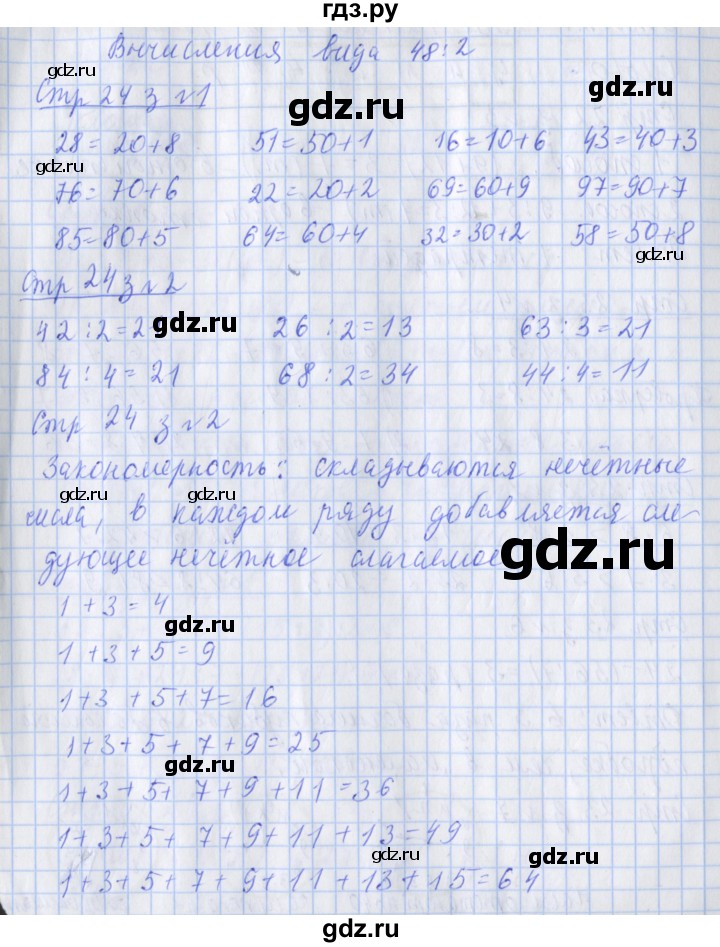 гдз.ру
Вычисления вида 48:2
gdz.ru
Стр 24 з №1
gdz.ru
gdz.ru
28=20+8 51=50+1 16=10+6 43=40+3
gdz.ru
76=70+6 22=20+2 69=60+9 97=90+7
85=80+5 64=60+4 32=30+2 58=50+8
gdz.ru
Стр 24 з №2
42:2=2 gdz.ru 26:2=13 63:3=21
84:4=21 68:2=34 44:4=11
Стр 24 з №2
Закономерность: складываются нечётные
gdz.ru
числа, в каждом ряду добавляется сле-
дующее нечётное слагаемое
gdz.ru
1+3=4
gdz.ru
1+3+5=9
1+3+5+7=16
1+3+5+7+9=25
gdz.ru
1+3+5+7+9+11=36
1+3+5+7+9+11+13=49
gdz.ru
gdz.ru
1+3+5+7+9+11+13+15=64
gdz.ru